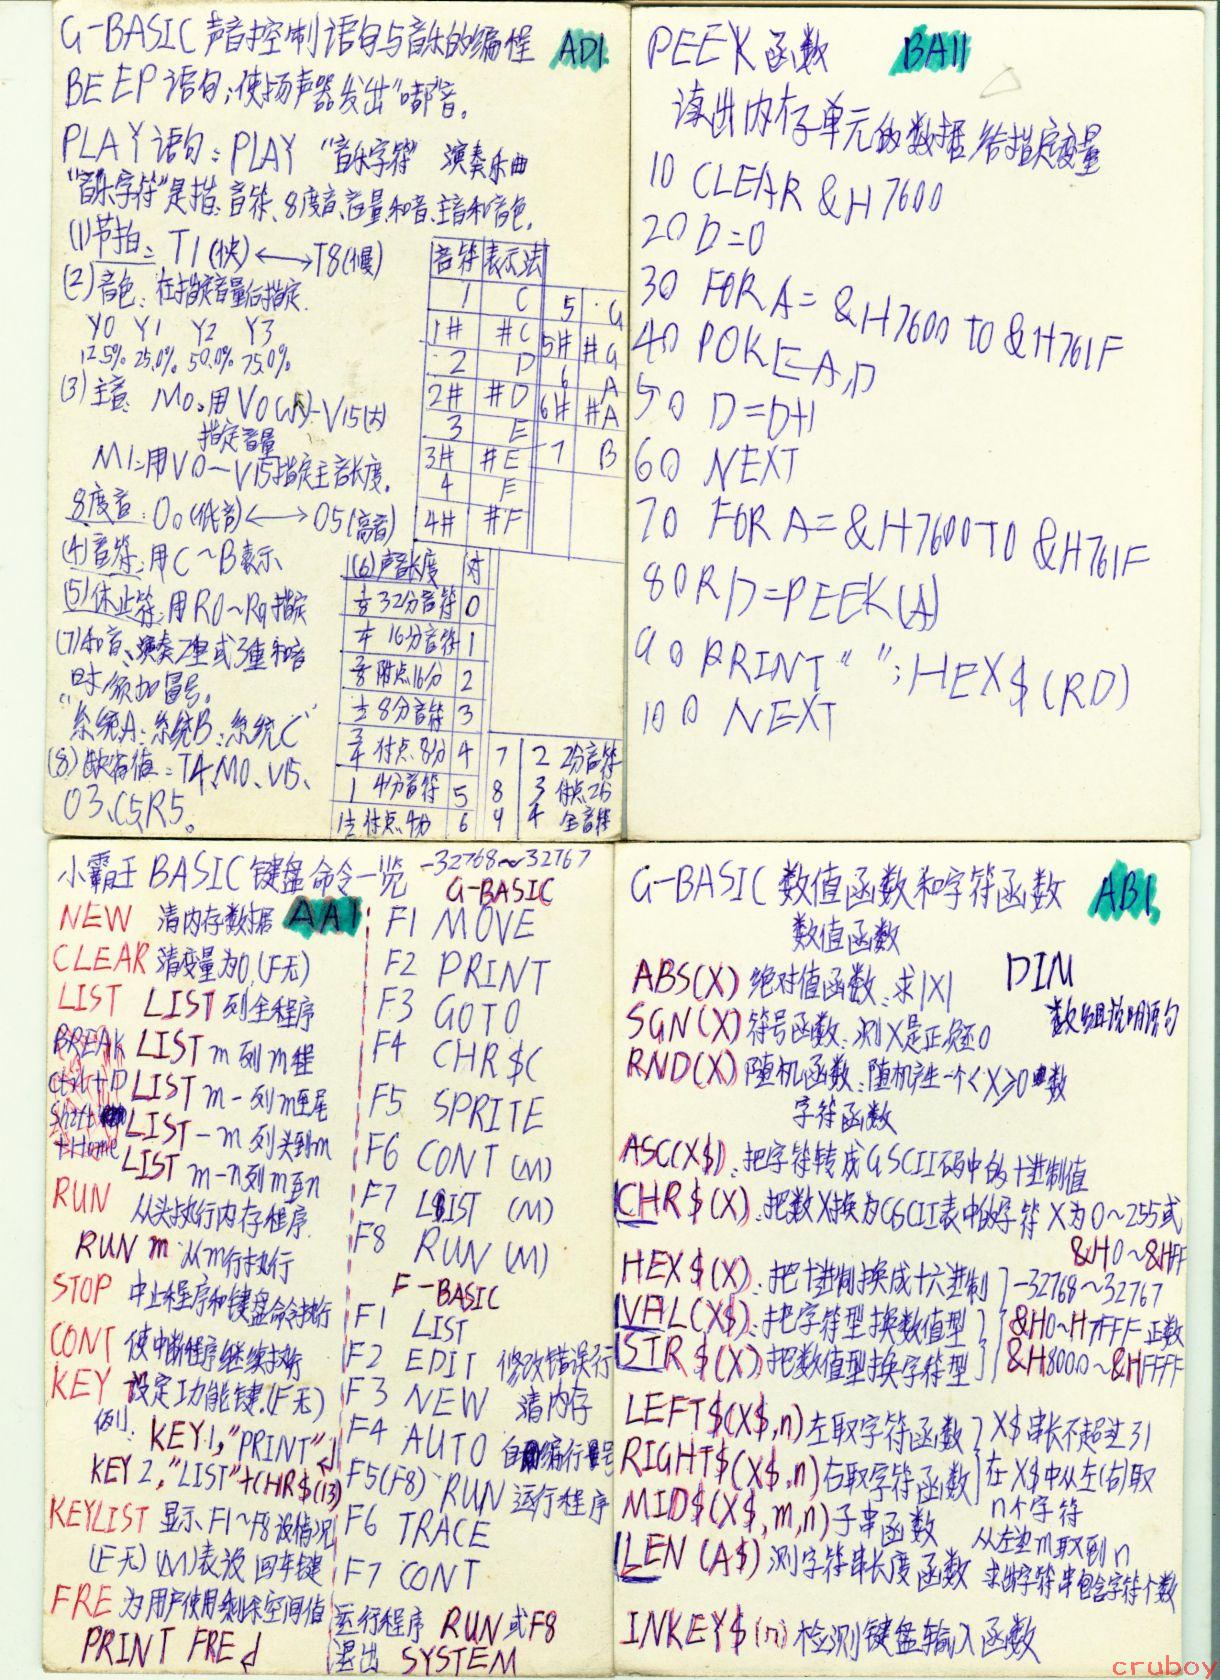 G-BASIC 声音控制语句与音乐的编程 AD1
BEEP语句:使扬声器发出"嘟"音。
PLAY语句:PLAY "音乐字符" 演奏乐曲
"音乐字符"是指:音符、8度音、音量、和音、主音和音色。
(1)节拍: T1(快)⟷T8(慢)
(2)音色:在指定音量后指定.
Y0 Y1 Y2 Y3
12.5% 25.0% 50.0% 75.0%
(3)主音: M0:用V0(小)-V15(大)
指定音量
M1:用V0—V15指定主音长度.
8度音:O0(低音)⟷O5(高音)
(4)音符:用C~B表示
(5)休止符:用R0~R9指定
(7)和音、演奏2重或3重和音
时须加冒号。
"系统A:系统B:系统C"
(8)缺省值:T4、M0、V15、
O3、C5、R5。
音符 表示法
1 C
1# #C
2 D
2# #D
3 E
3# #E
4 F
4# #F
5 G
5# #G
6 A
6# #A
7 B
(6)声音长度 对
32分音符 0
16分音符 1
附点16分 2
8分音符 3
付点8分 4
1 4分音符 5
付点4分 6
7 2 2分音符
8 3 付点2分
9 4 全音符
PEEK函数 BA11
读出内存单元的数据给指定变量
10 CLEAR &H7600
20 D=0
30 FOR A=&H7600 TO &H761F
40 POKE A,D
50 D=D+1
60 NEXT
70 FOR A=&H7600 TO &H761F
80 RD=PEEK(A)
90 PRINT" ";HEX$(RD)
100 NEXT
小霸王BASIC键盘命令一览 -32768~32767
AA1
NEW 清内存数据
CLEAR 清变量为0.(F无)
LIST LIST 列全程序
BREAK LIST m 列m程
LIST m- 列m至尾
LIST -m 列头到m
+Home
LIST m-n 列m至n
RUN 从头执行内存程序.
RUN m 从m行执行
STOP 中止程序和键盘命令执行
CONT 使中断程序继续执行
KEY 设定功能键.(F无)
例: KEY1,"PRINT"↵
KEY 2,"LIST"+(CHR$(13)
KEYLIST 显示F1~F8设情况
(F无) (M)表设回车键
FRE 为用户使用剩余空间值
PRINT FRE↵
G-BASIC
F1 MOVE
F2 PRINT
F3 GOTO
F4 CHR$(
F5 SPRITE
F6 CONT (M)
F7 LIST (M)
F8 RUN (M)
F-BASIC
F1 LIST
F2 EDIT 修改错误行
F3 NEW 清内存
F4 AUTO 自动编行号
F5(F8) RUN 运行程序
F6 TRACE
F7 CONT
运行程序 RUN 或F8
退出 SYSTEM
G-BASIC 数值函数和字符函数 AB1
数值函数
ABS(X) 绝对值函数:求|X|
DIM
数组说明语句
SGN(X) 符号函数:测X是正负还0
RND(X) 随机函数:随机产生一个<X≥0数
字符函数
ASC(X$):把字符转成ASCII码中的十进制值
CHR$(X):把数X换为ASCII表中的字符 X为0~255或
&H0~&HFF
HEX$(X):把十进制换成十六进制 -32768~32767
VAL(X$):把字符型换数值型 &H0~H7FFF正数
STR$(X)把数值型换字符型 &H8000~&HFFFF
LEFT$(X$,n)左取字符函数 X$串长不超过31
RIGHT$(X$,n)右取字符函数 在X$中从左(右)取
n个字符
MID$(X$,m,n)子串函数 从左边m取到n
LEN(A$)测字符串长度函数 求出字符串包含字符个数
INKEY$(n)检测键盘输入函数
cruboy